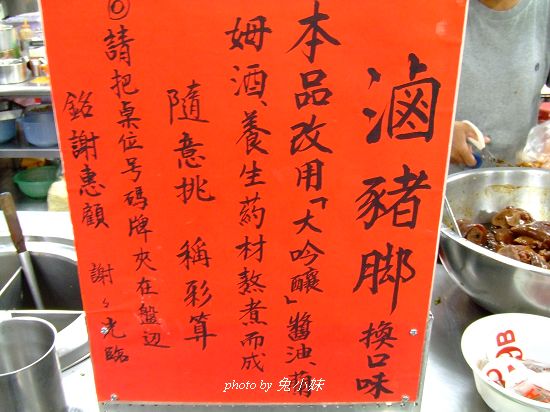 滷豬脚換口味
本品改用「大吟釀」醬油、莿
姆酒、養生葯材熬煮而成
隨意挑 稱彩算
◎請把桌位号碼牌夾在盤边
銘謝惠顧 謝々光臨
photo by 兔小妹